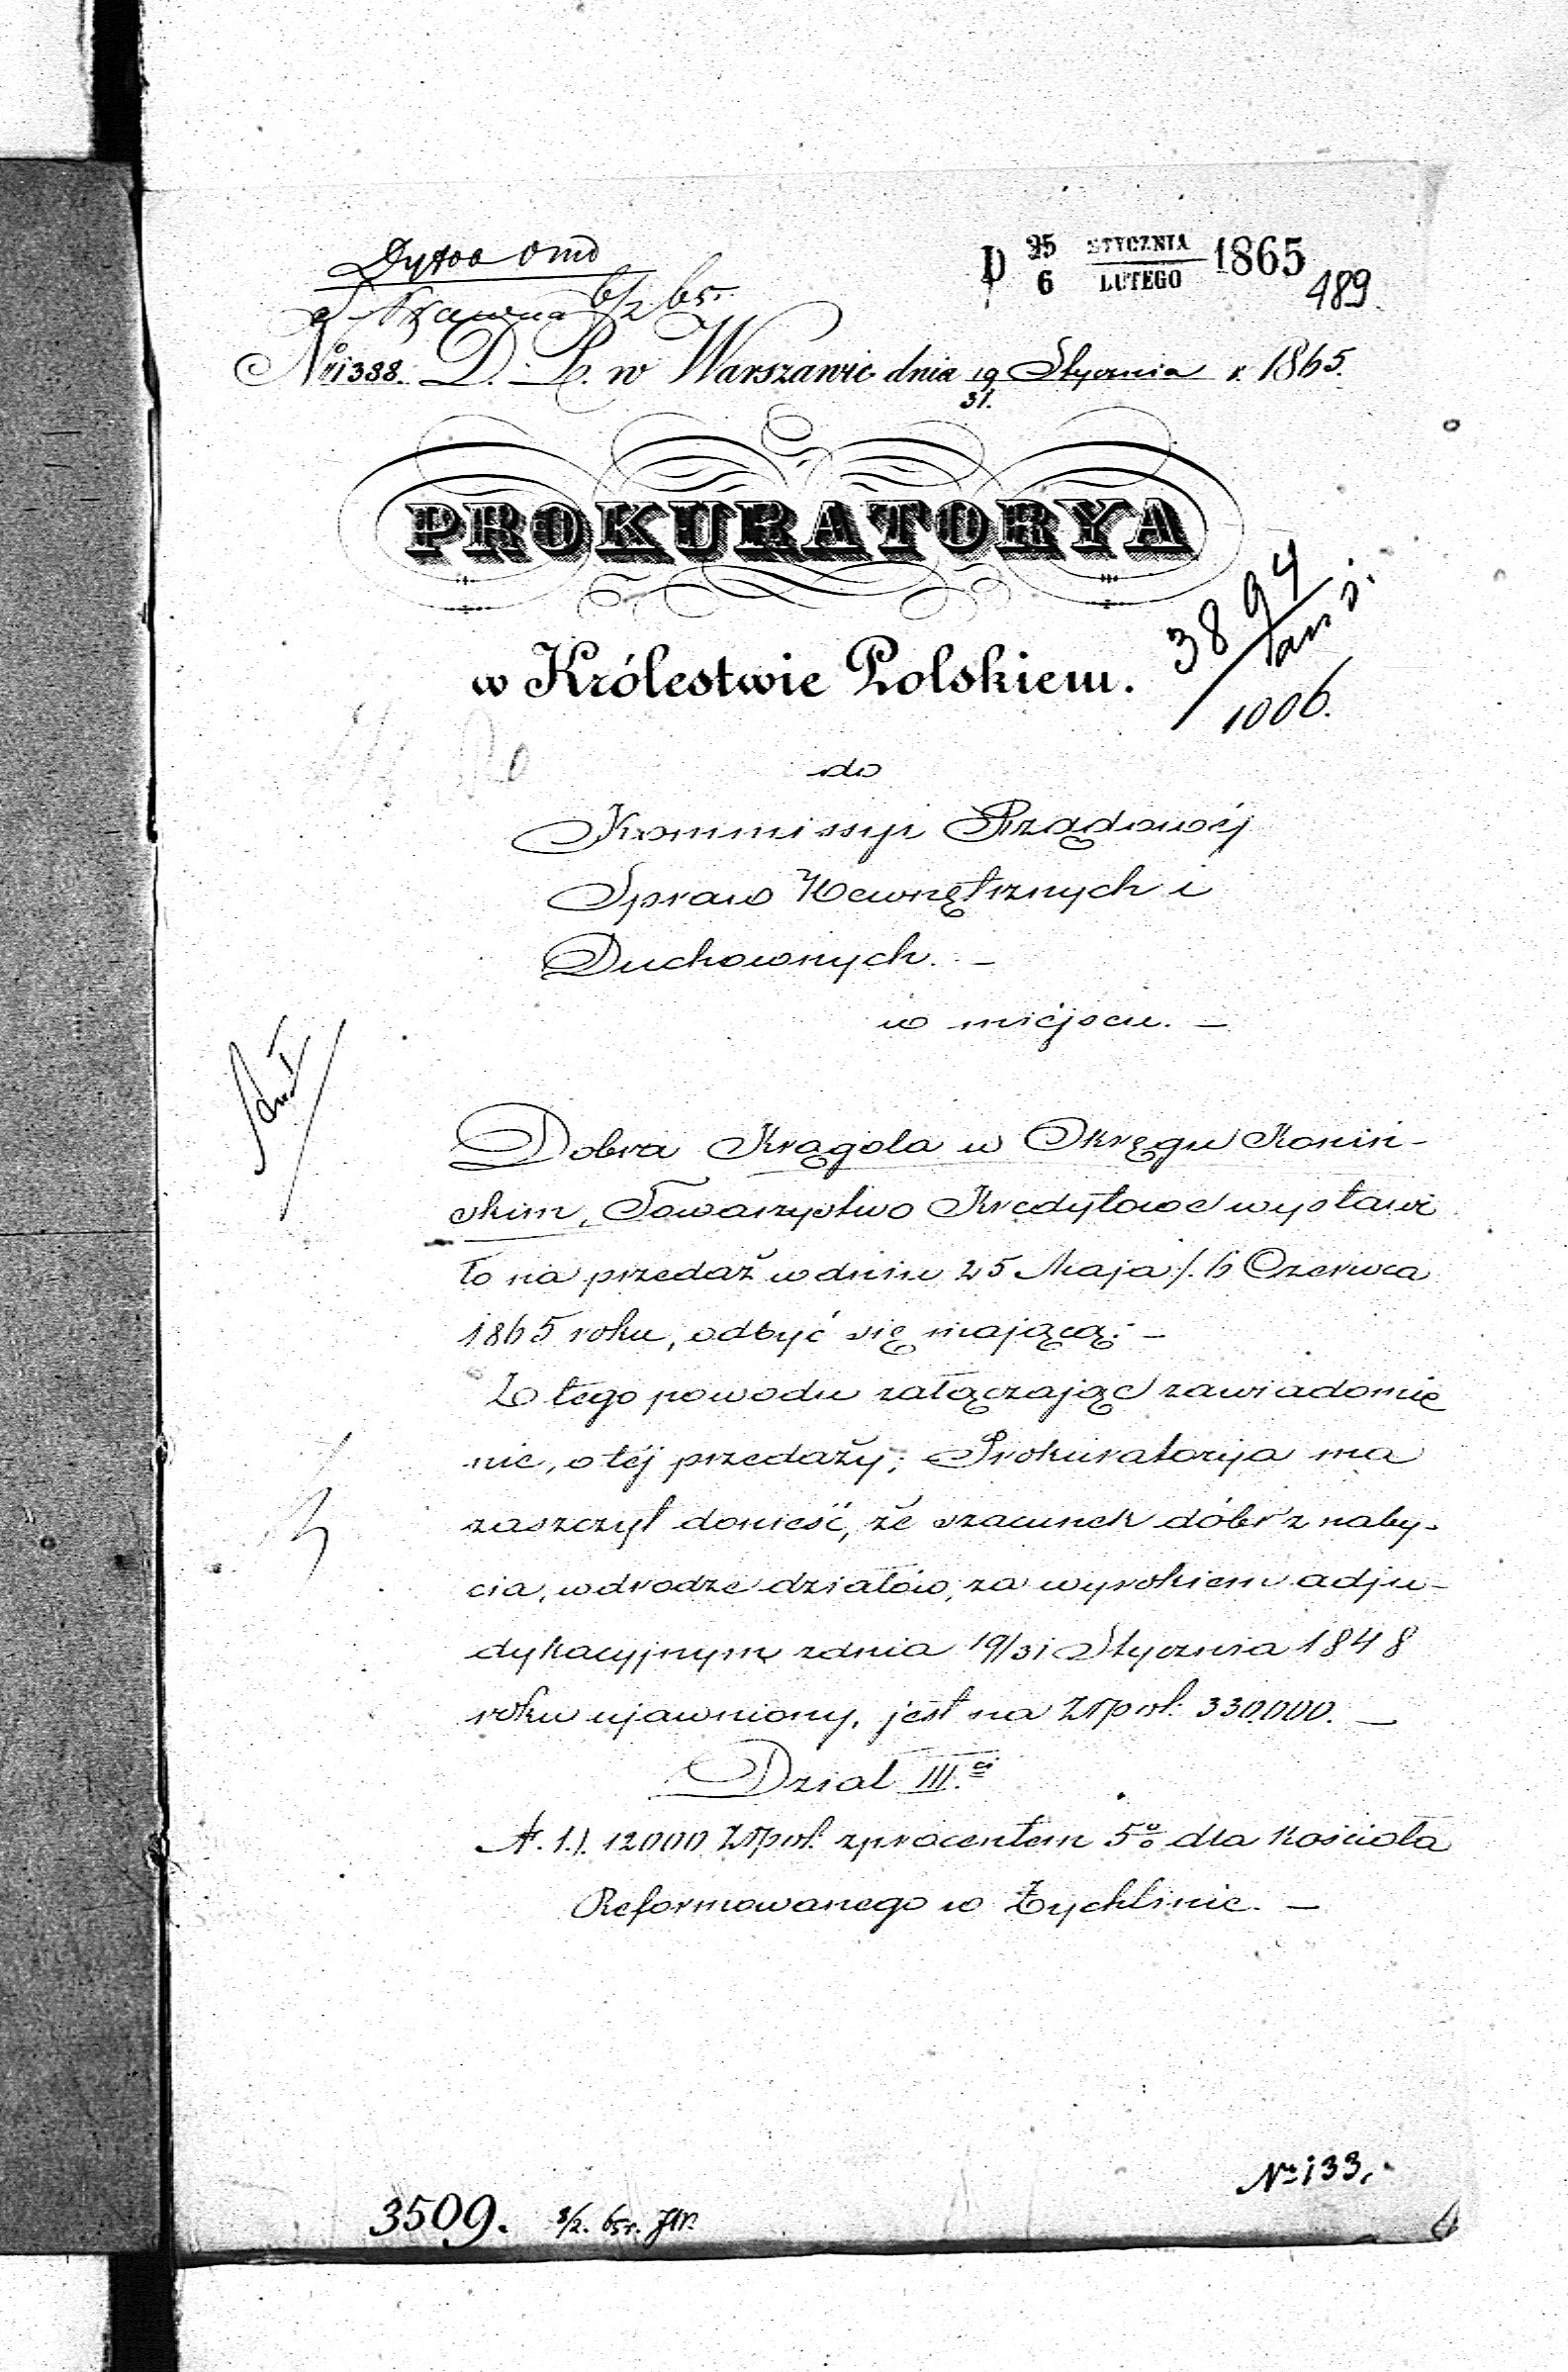 D 25 STYCZNIA 1865
6 LUTEGO
489
6/2 65.
No 1388. D. P. w Warszawie dnia 19 Stycznia r. 1865.
31.
PROKURATORYA
w Królestwie Polskiem.
3894
1006.
do
Kommissyi Rządowéj
Spraw Wewnętrznych i
Duchownych. –
w miéjscu. –
Dobra Krągola w Okręgu Koniń-
skim, Towarzystwo Kredytowe wystawi
ło na przedaż w dniu 25 Maja /. 6 Czerwca
1865 roku, odbyć się mającą. –
Z tego powodu załączając zawiadomie
nie, o téj przedaży; Prokuratorya ma
zaszczyt donieść, że szacunek dóbr z naby-
cia, w drodze działów, za wyrokiem adju-
dykacyjnym z dnia 19/31 Stycznia 1848
roku ujawniony, jest na Złpol: 330.000. –
Dział III.ci
N. 1.). 12000 Złpol: z procentem 5% dla Kościoła
Reformowanego w Żychlinie. –
No 133.
3509. 3/2. 65 r.